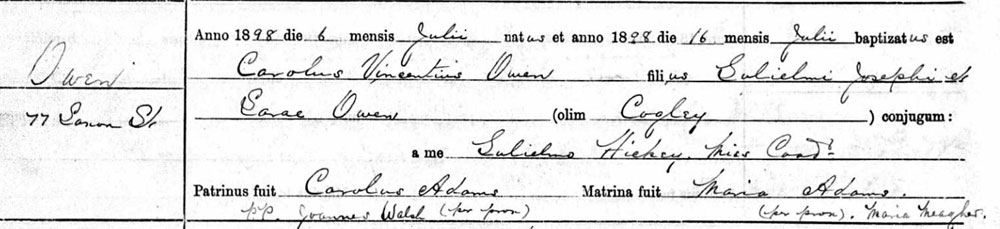 Anno 1898 die 6 mensis Julii natus et anno 1898 die 16 mensis Julii baptizatus est
Owen
Carolus Vincentius Owen filius Gulielmi Josephi et
77 Saxon St
Sarae Owen (olim Cogley) conjugum:
a me Gulielmo Hickey. Miss Coadr
Patrinus fuit Carolus Adams Matrina fuit Maria Adams.
pp. Joannes Walsh (per prox) (per prox). Maria Meagher.